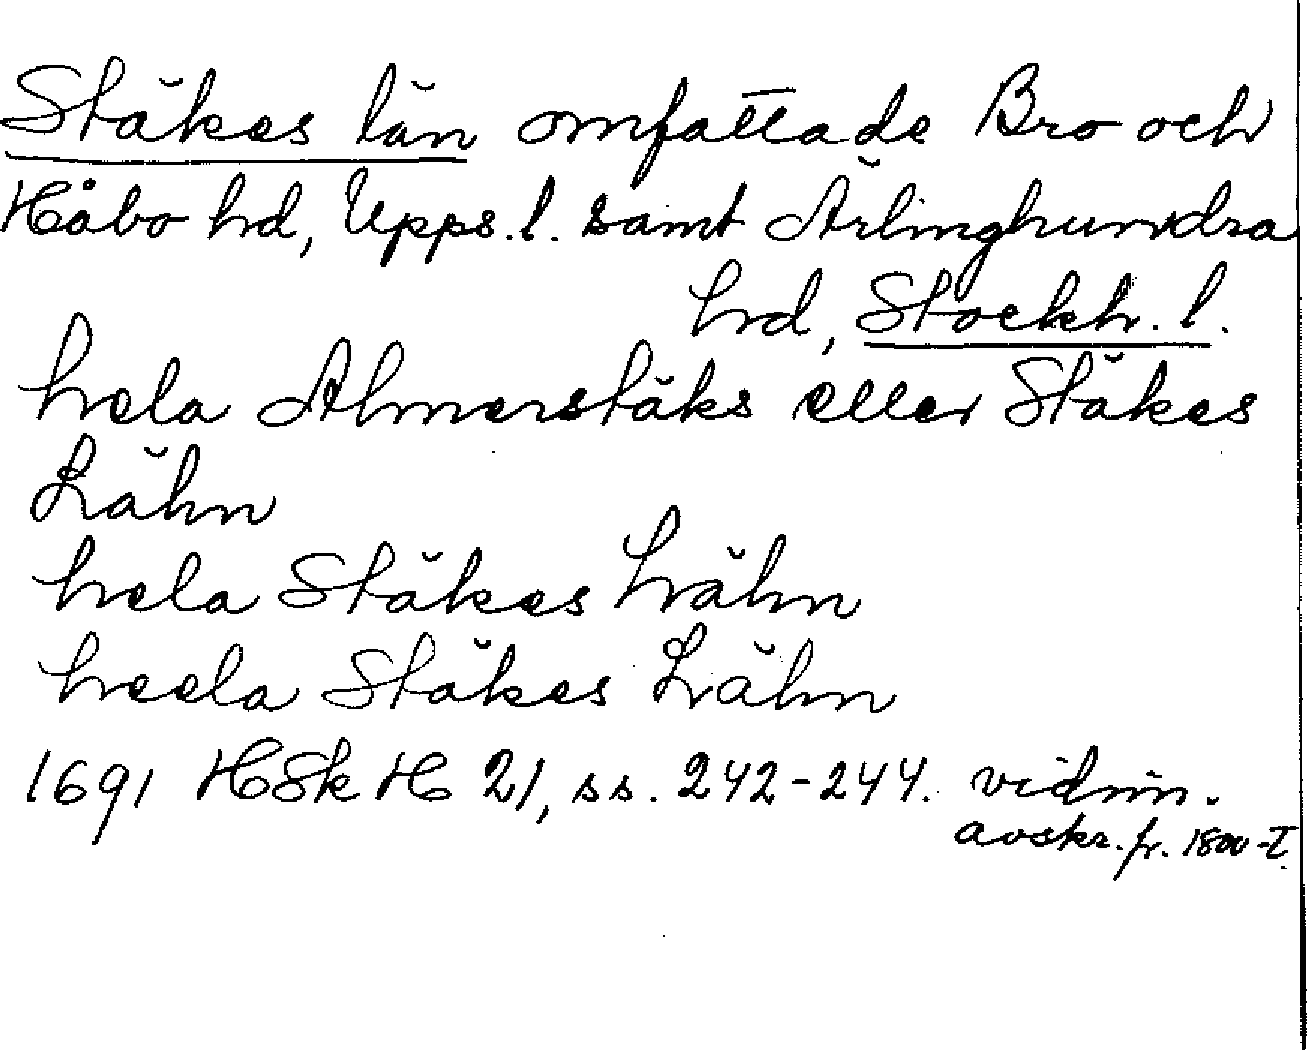 Stäkes län omfattade Bro och
Håbo hd, Upps. l. samt Ärlinghundra
hd, Stockh. l.
hela Almerstäks eller Stäkes
Lähn
hela Stäkes Lähn
heela Stäkes Lähn
1691 HSkH 21, ss. 242-244. vidim.
avskr. fr. 1800-t.